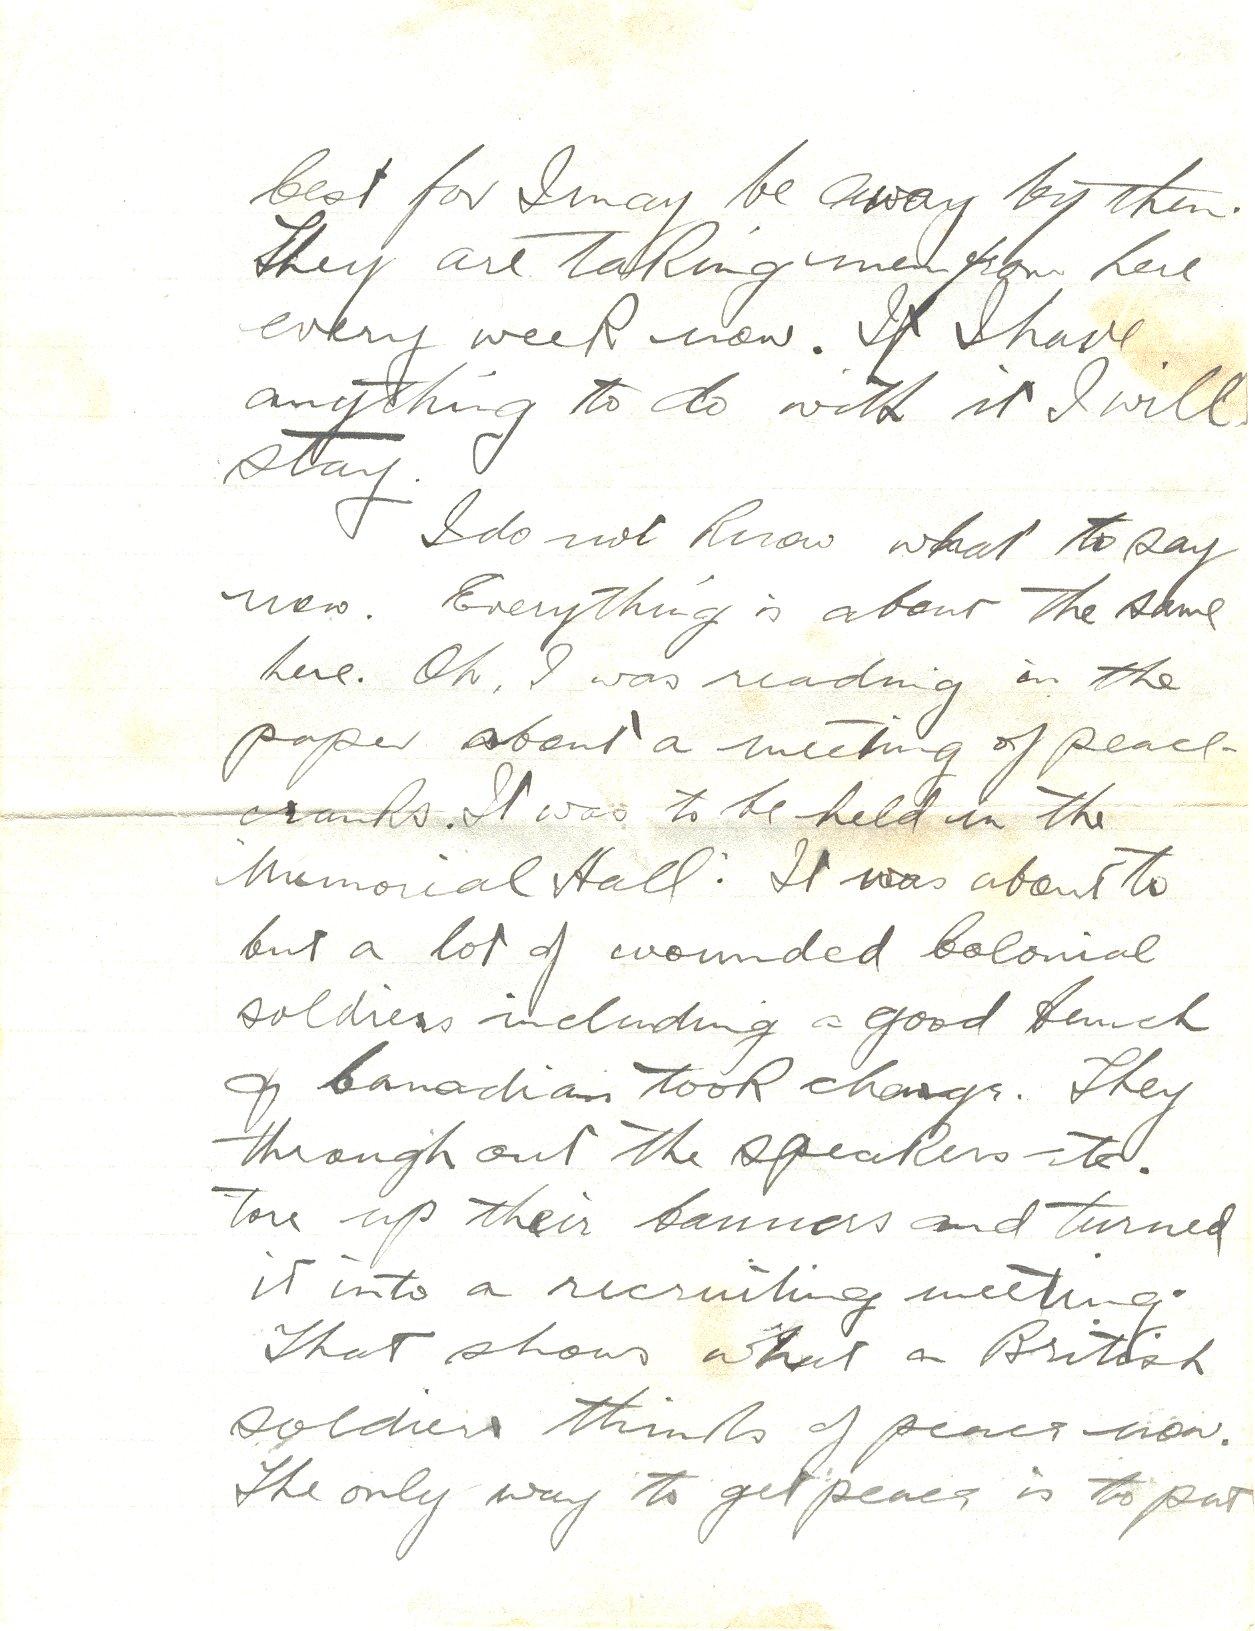 best for I may be away by then.
They are taking men from here
every week now. If I have
anything to do with it I will
stay.
I do not know what to say
now. Everything is about the same
here. Oh, I was reading in the
paper about a meeting of peace-
cranks. It was to be held in the
Memorial Hall. It was about to
but a lot of wounded Colonial
soldiers including a good bunch
of Canadians took charge. They
through out the speakers etc.
tore up their banners and turned
it into a recruiting meeting.
That shows what a British
soldiers thinks of peace now.
The only way to get peace is to put